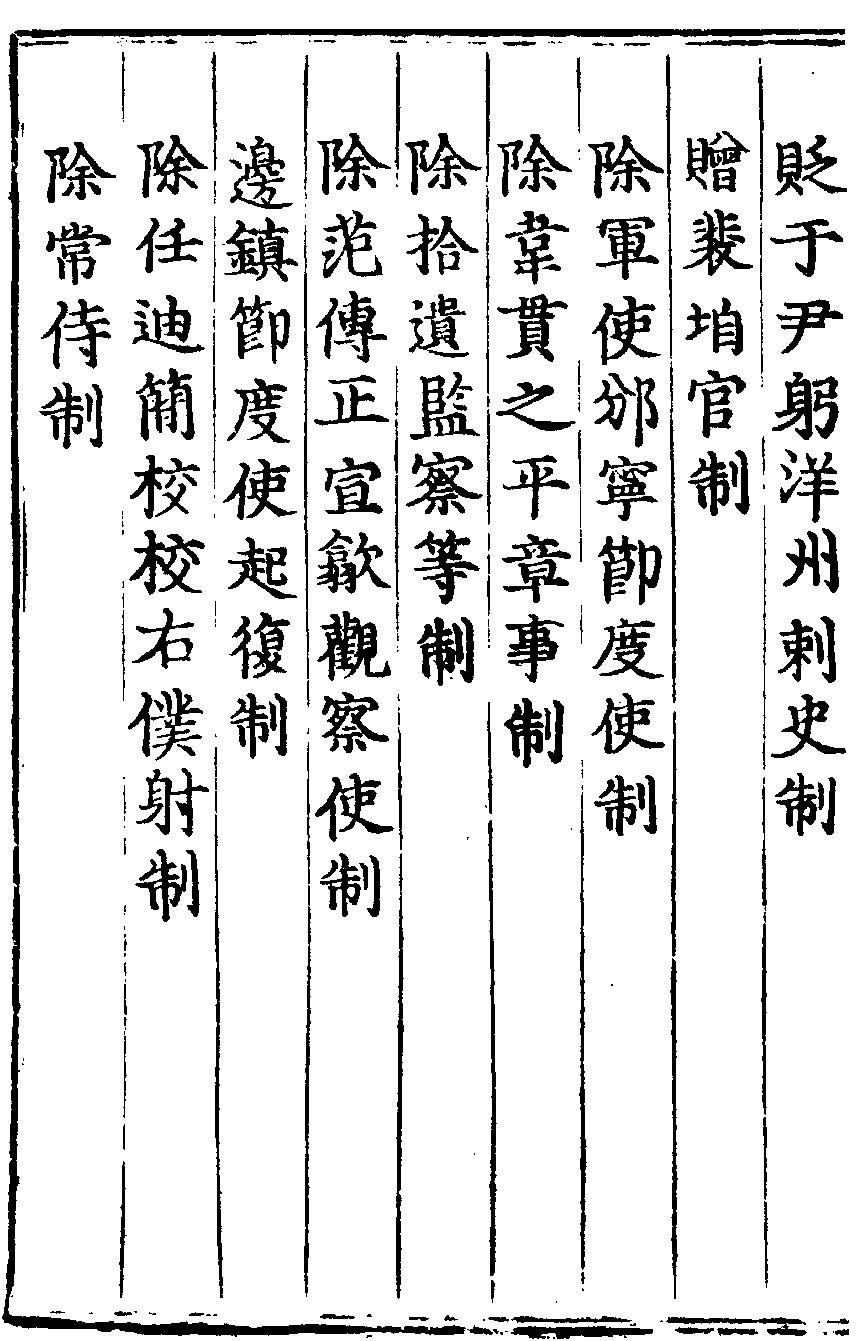 貶于尹躬洋州剌史制
贈裴垍官制
除軍使邠寧節度使制
除韋貫之平章事制
除拾遺監察等制
除范傳正宣歙觀察使制
邊鎮節度使起復制
除任迪簡檢校右僕射制
除常侍制